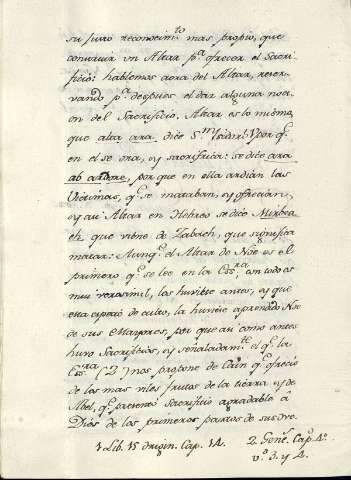 su justo reconocim.to mas propio, que
construir un Altar p.a ofrecer el Sacri-
ficio: hablemos aora del Altar, reser-
vando p.a despues el dar alguna noci-
on del Sacrificio. Altar es lo mismo
que alta ara dice S.n Isidr.1 Y por q.e
en el se ora, y sacrifica: se dice ara
ab ardore, por que en ella ardian las
Victimas, q.e se mataban, y ofrecian,
y asi Altar en Hebreo se dice Mizbea-
ch que viene de Zabach, que significa
matar: Aunq.e el Altar de Nōe es el
primero q.e se lee en la Ess.ra con todo es
mui verosimil, las huviese antes, y que
esta especie de culto, la huviese aprendido Nōe
de sus Mayores, por que asi como antes
huvo Sacrificios, y señaladam.te el q.e la
Ess.ra (2) nos propone de Cain q.e ofrecio
de los mas viles frutos de la tierra, y de
Abel, q.e presentó sacrificio agradable á
Dios de los primeros partos de sus ove-
1 Lib. 15 origin. Cap. 14. 2 Gene. Cap.o 4.o
v.o 3. y 4.